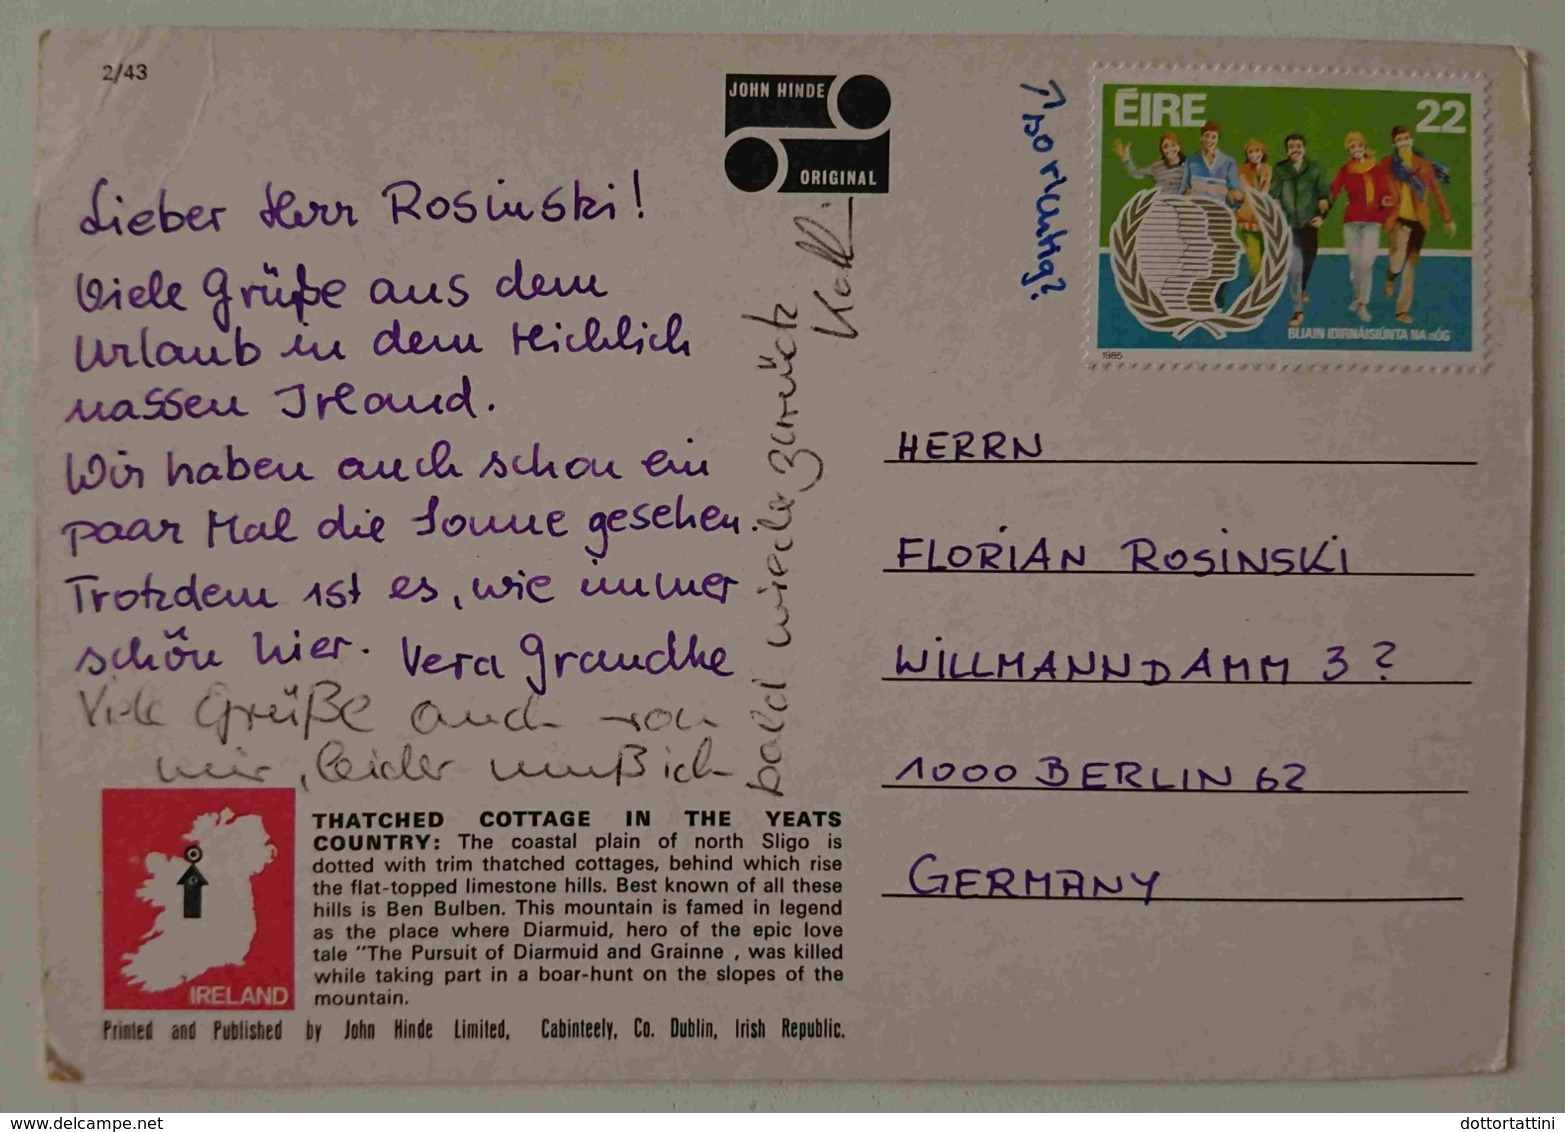 2/43
JOHN HINDE
ORIGINAL
ÉIRE 22
BLIAIN IDIRNÁISIÚNTA NA nÓG
1985
richtig?
Lieber Herr Rosinski!
Viele Grüße aus dem
Urlaub in dem reichlich
nassen Irland.
Wir haben auch schon ein
paar Mal die Sonne gesehen.
Trotzdem ist es, wie immer
schön hier. Vera Grandke
Viele Grüße auch von
mir, leider muß ich
bald wieder zurück
HERRN
FLORIAN ROSINSKI
WILLMANNDAMM 3?
1000 BERLIN 62
GERMANY
IRELAND
THATCHED COTTAGE IN THE YEATS
COUNTRY: The coastal plain of north Sligo is
dotted with trim thatched cottages, behind which rise
the flat-topped limestone hills. Best known of all these
hills is Ben Bulben. This mountain is famed in legend
as the place where Diarmuid, hero of the epic love
tale "The Pursuit of Diarmuid and Grainne , was killed
while taking part in a boar-hunt on the slopes of the
mountain.
Printed and Published by John Hinde Limited, Cabinteely, Co. Dublin, Irish Republic.
delcampe.net
dottortattini